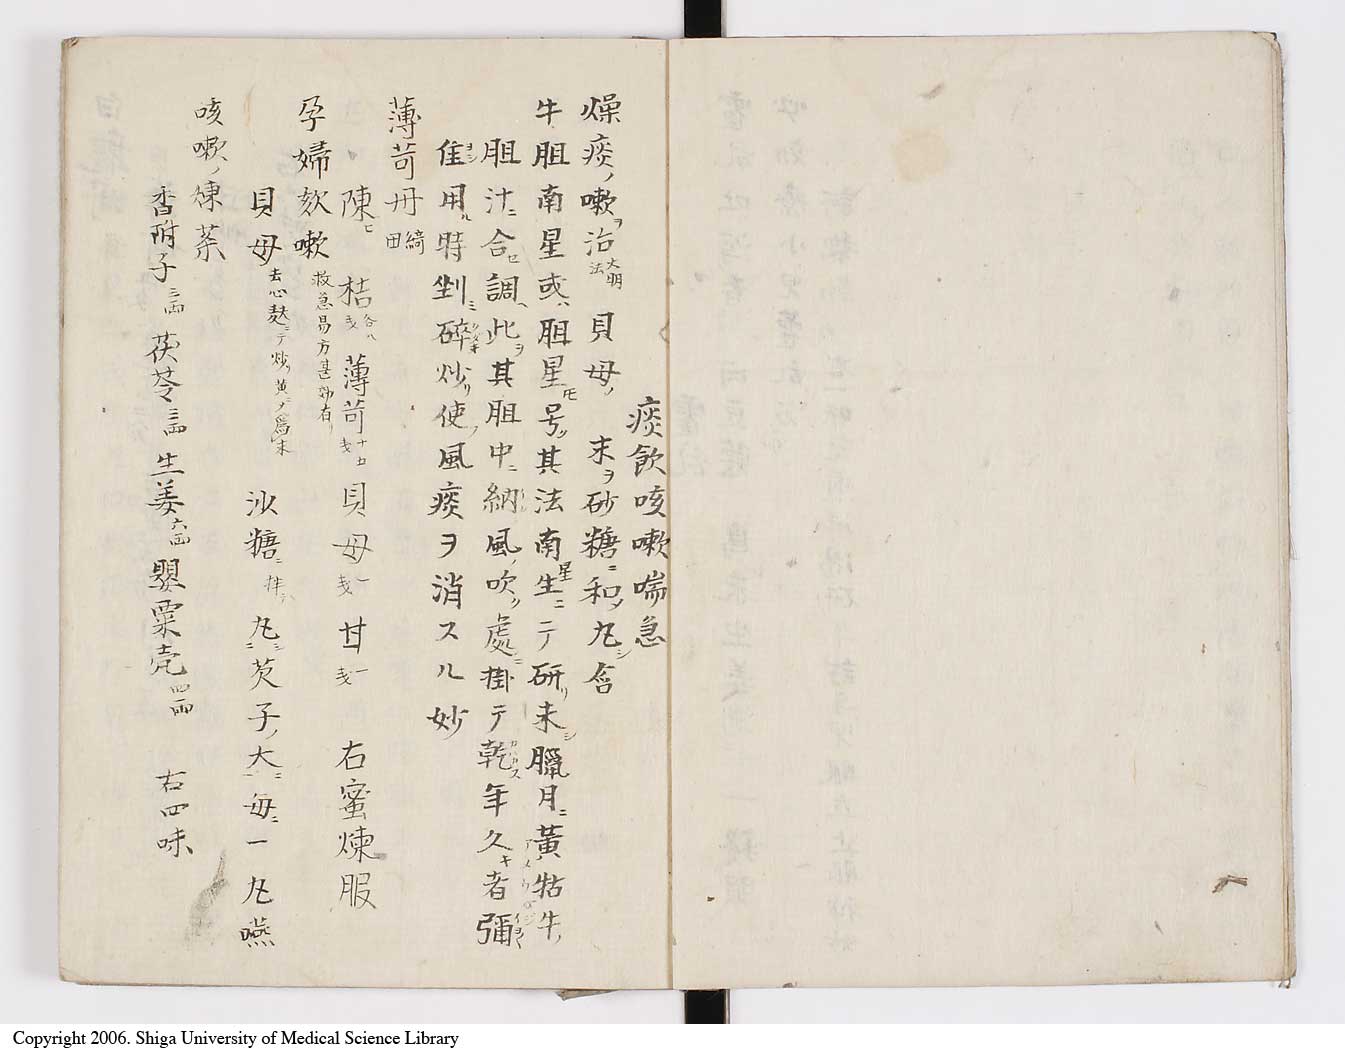 痰飲咳嗽喘急
燥痰ノ嗽ヲ治 大明法 貝母ノ末ヲ砂糖ニ和ノ丸シ含
牛胆南星或ハ胆星ト号ク其法南星生ニテ研リ末シ臘月ニ黄牯牛ノ
胆汁ニ合セ調ヘ此ヲ其胆中ニ納レ風ノ吹ク處ニ掛テ乾カス年久キ者彌
佳ヨシ用ル時剉ミ碎クダキ炒リ使フ風痰ヲ消スル妙
薄苛丹 綺田
陳 桔 薄苛 貝母 甘 右蜜煉服
孕婦欬嗽 救急易方甚効有リ
貝母 去心麩ニテ炒リ黄ニノ爲末 沙糖ニ拌テ丸シ芡子ノ大ニ毎ニ一丸嚥
咳嗽ノ煉薬
香附子 三両 茯苓 三両 生姜 六両 罌粟壳 四両 右四味
Copyright 2006. Shiga University of Medical Science Library